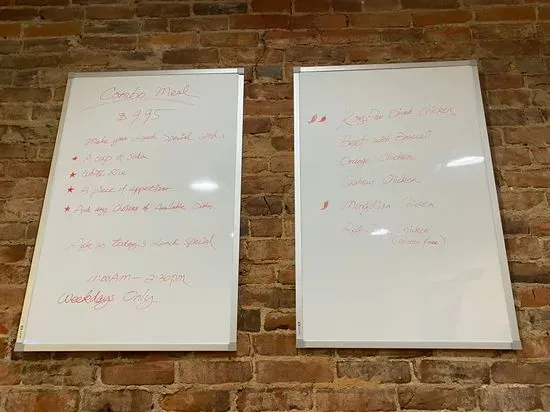 Combo Meal
$9.95
Make your Lunch Special with:
★ A cup of
★ White Rice
★ A piece of appetizer
★ And any Choices of Available
today's Lunch Special
11:00AM - 2:30pm
Weekdays Only
Kung Pao Diced Chicken
Beef with Broccoli
Orange Chicken
Cashew Chicken
Mongolian Chicken
Chicken
(Gluten Free)